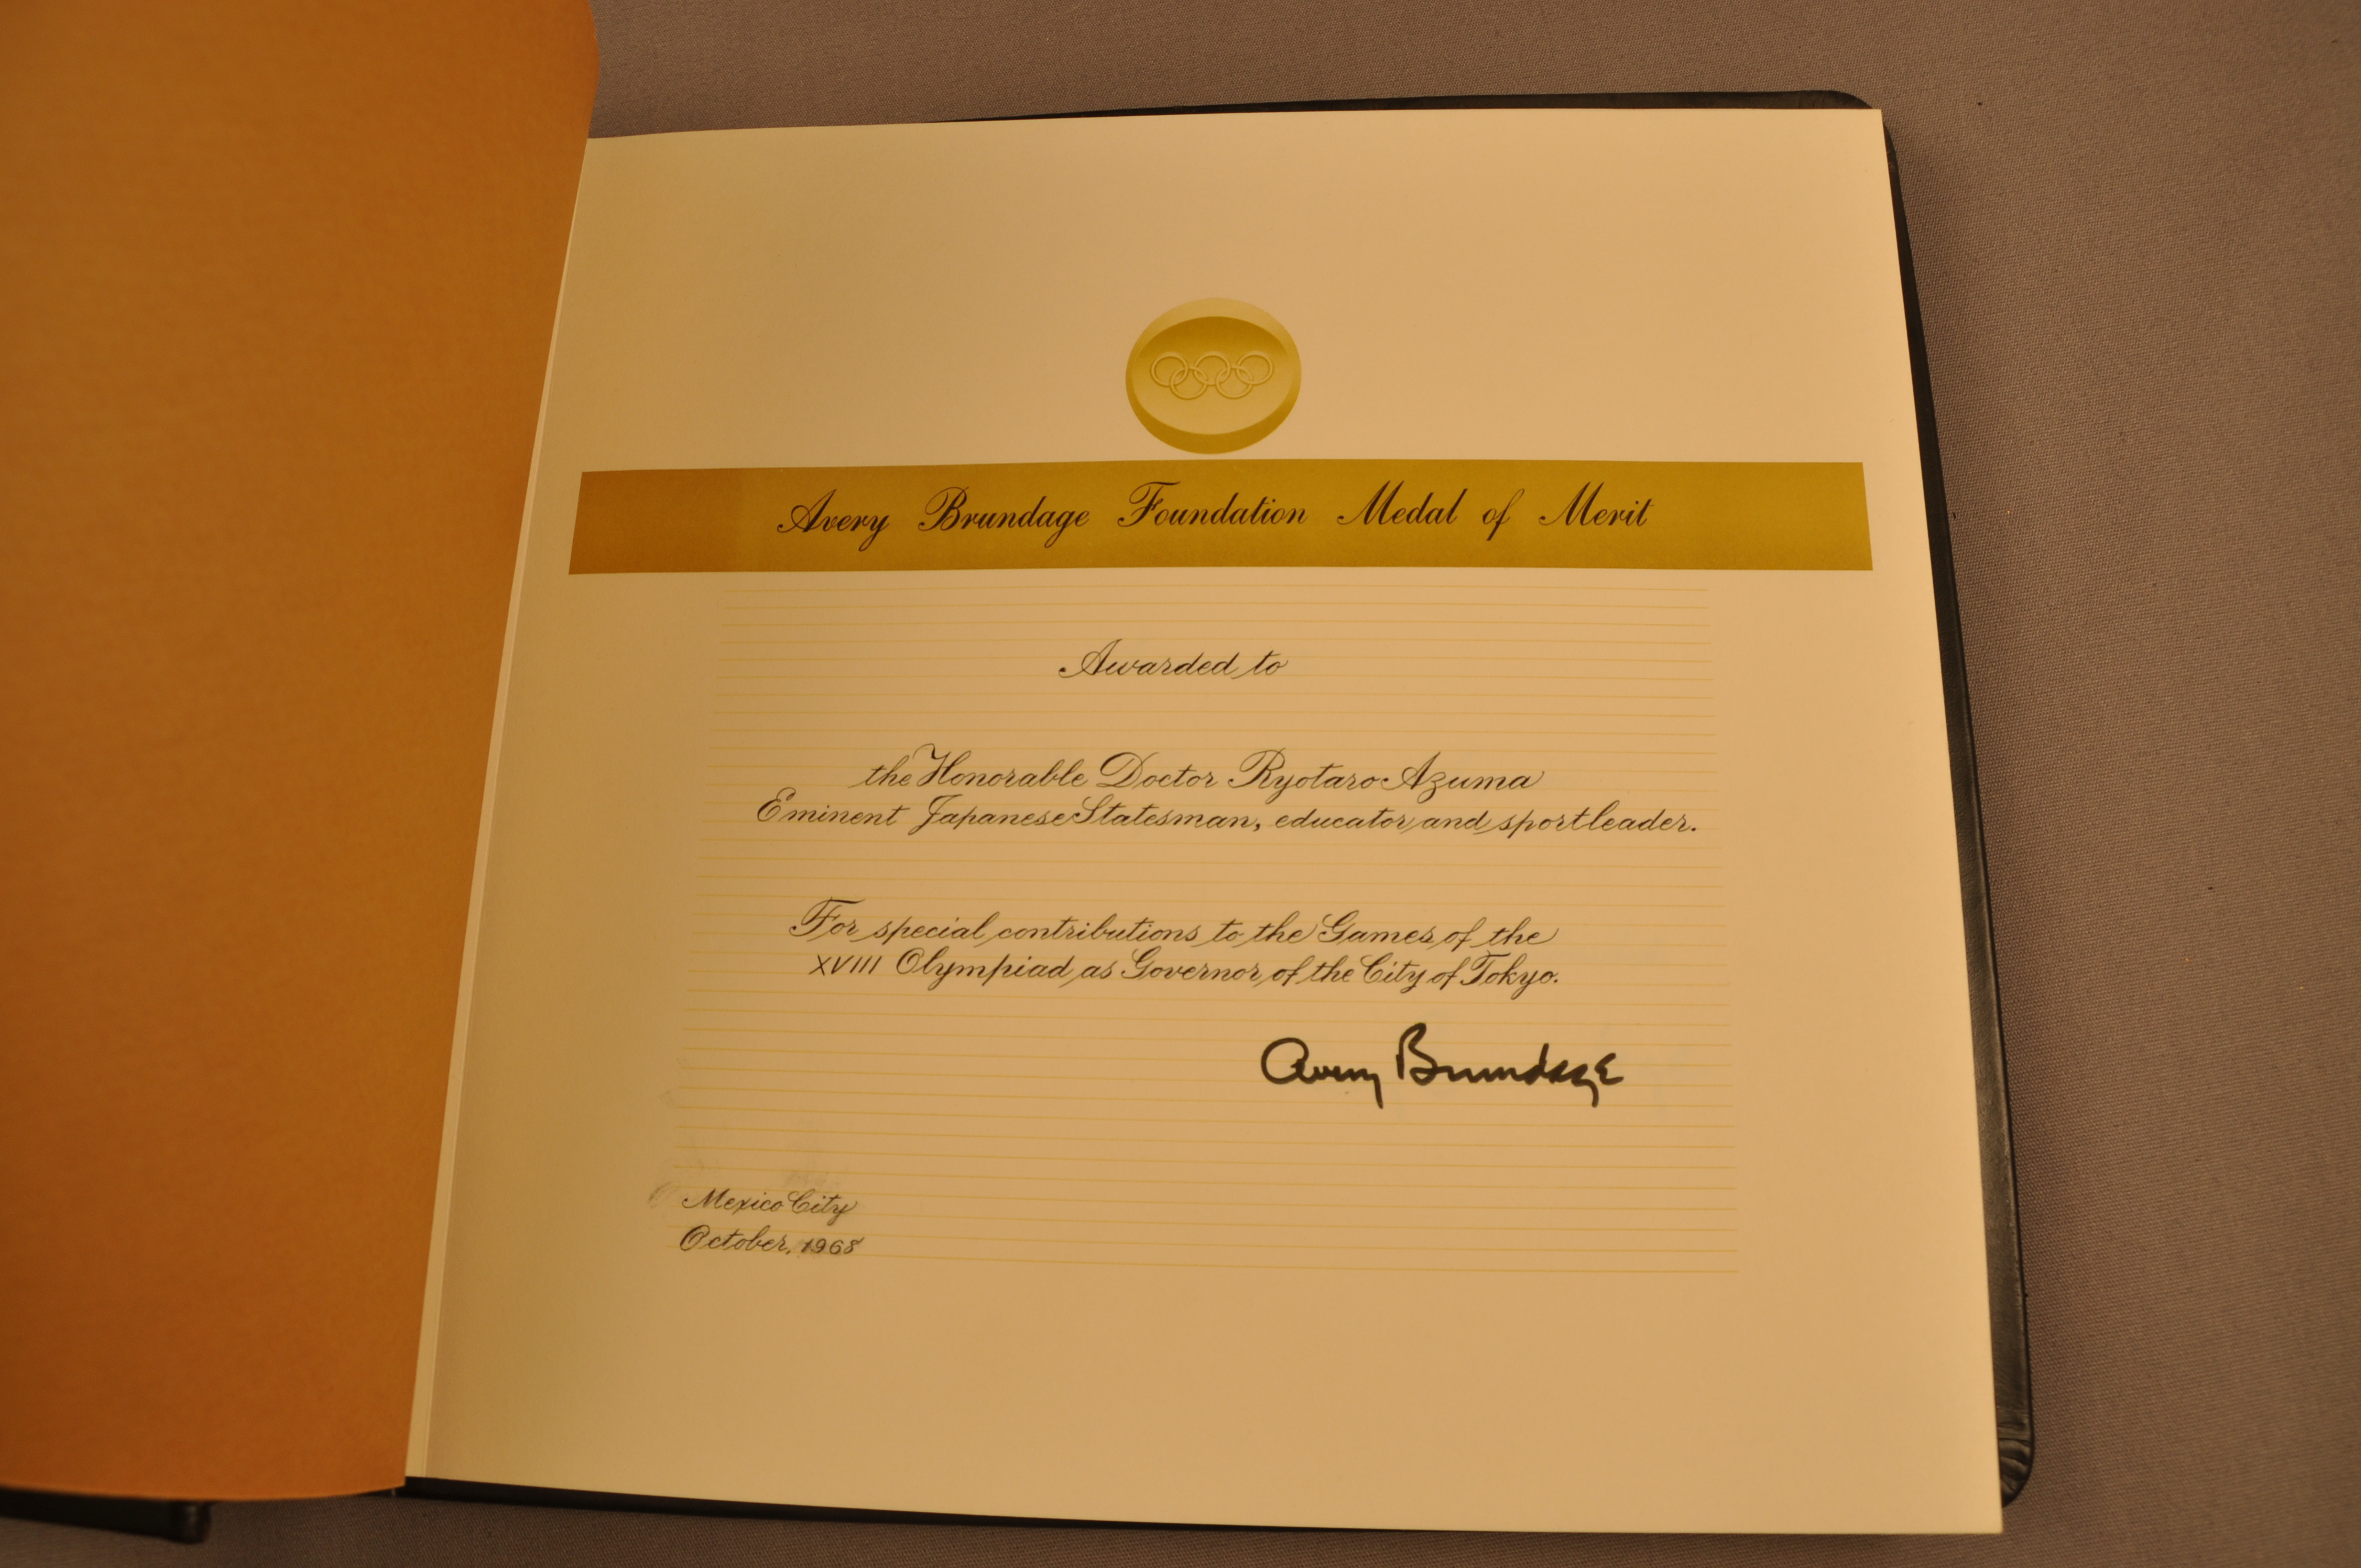 Avery Brundage Foundation Medal of Merit
Awarded to
the Honorable Doctor Ryotaro Azuma
Eminent Japanese Statesman, educator and sportleader.
For special contributions to the Games of the
XVIII Olympiad as Governor of the City of Tokyo.
Avery Brundage
Mexico City
October, 1968